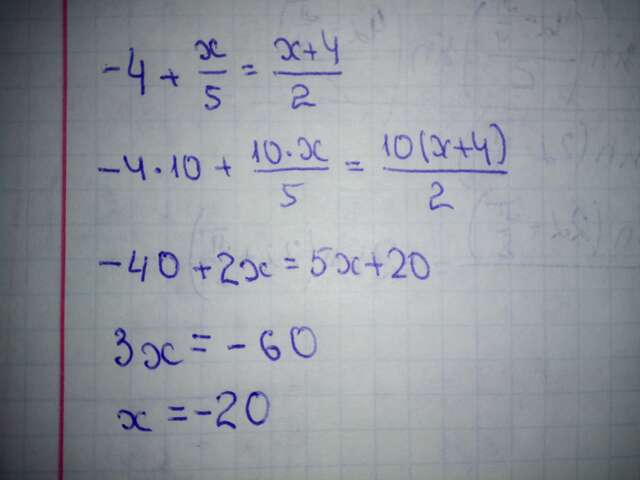 -4 + x/5 = (x+4)/2
-4·10 + (10·x)/5 = 10(x+4)/2
-40 + 2x = 5x + 20
3x = -60
x = -20